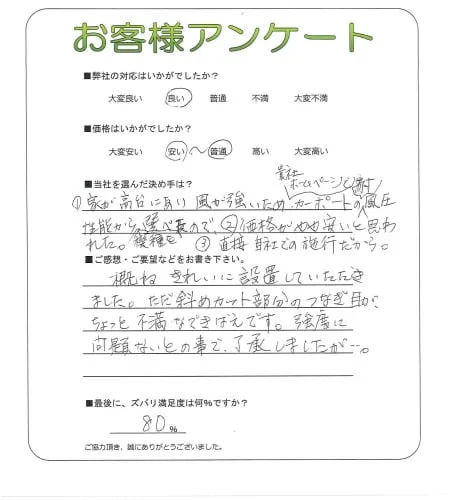 お客様アンケート
■弊社の対応はいかがでしたか？
大変良い 良い 普通 不満 大変不満
■価格はいかがでしたか？
大変安い 安い 〜 普通 高い 大変高い
■当社を選んだ決め手は？
貴社
ホームページで
①家が高台にあり風が強いため、カーポートの風圧
性能から選べたので、②価格がやや安いと思わ
れた。 機種を ③直接自社での施行だから。
■ご感想・ご要望などをお書き下さい。
概ねきれいに設置していただき
ました。ただ斜めカット部分のつなぎ目が、
ちょっと不満なできばえです。強度に
問題ないとの事で、了承しましたが…。
■最後に、ズバリ満足度は何%ですか？
80%
ご協力頂き、誠にありがとうございました。